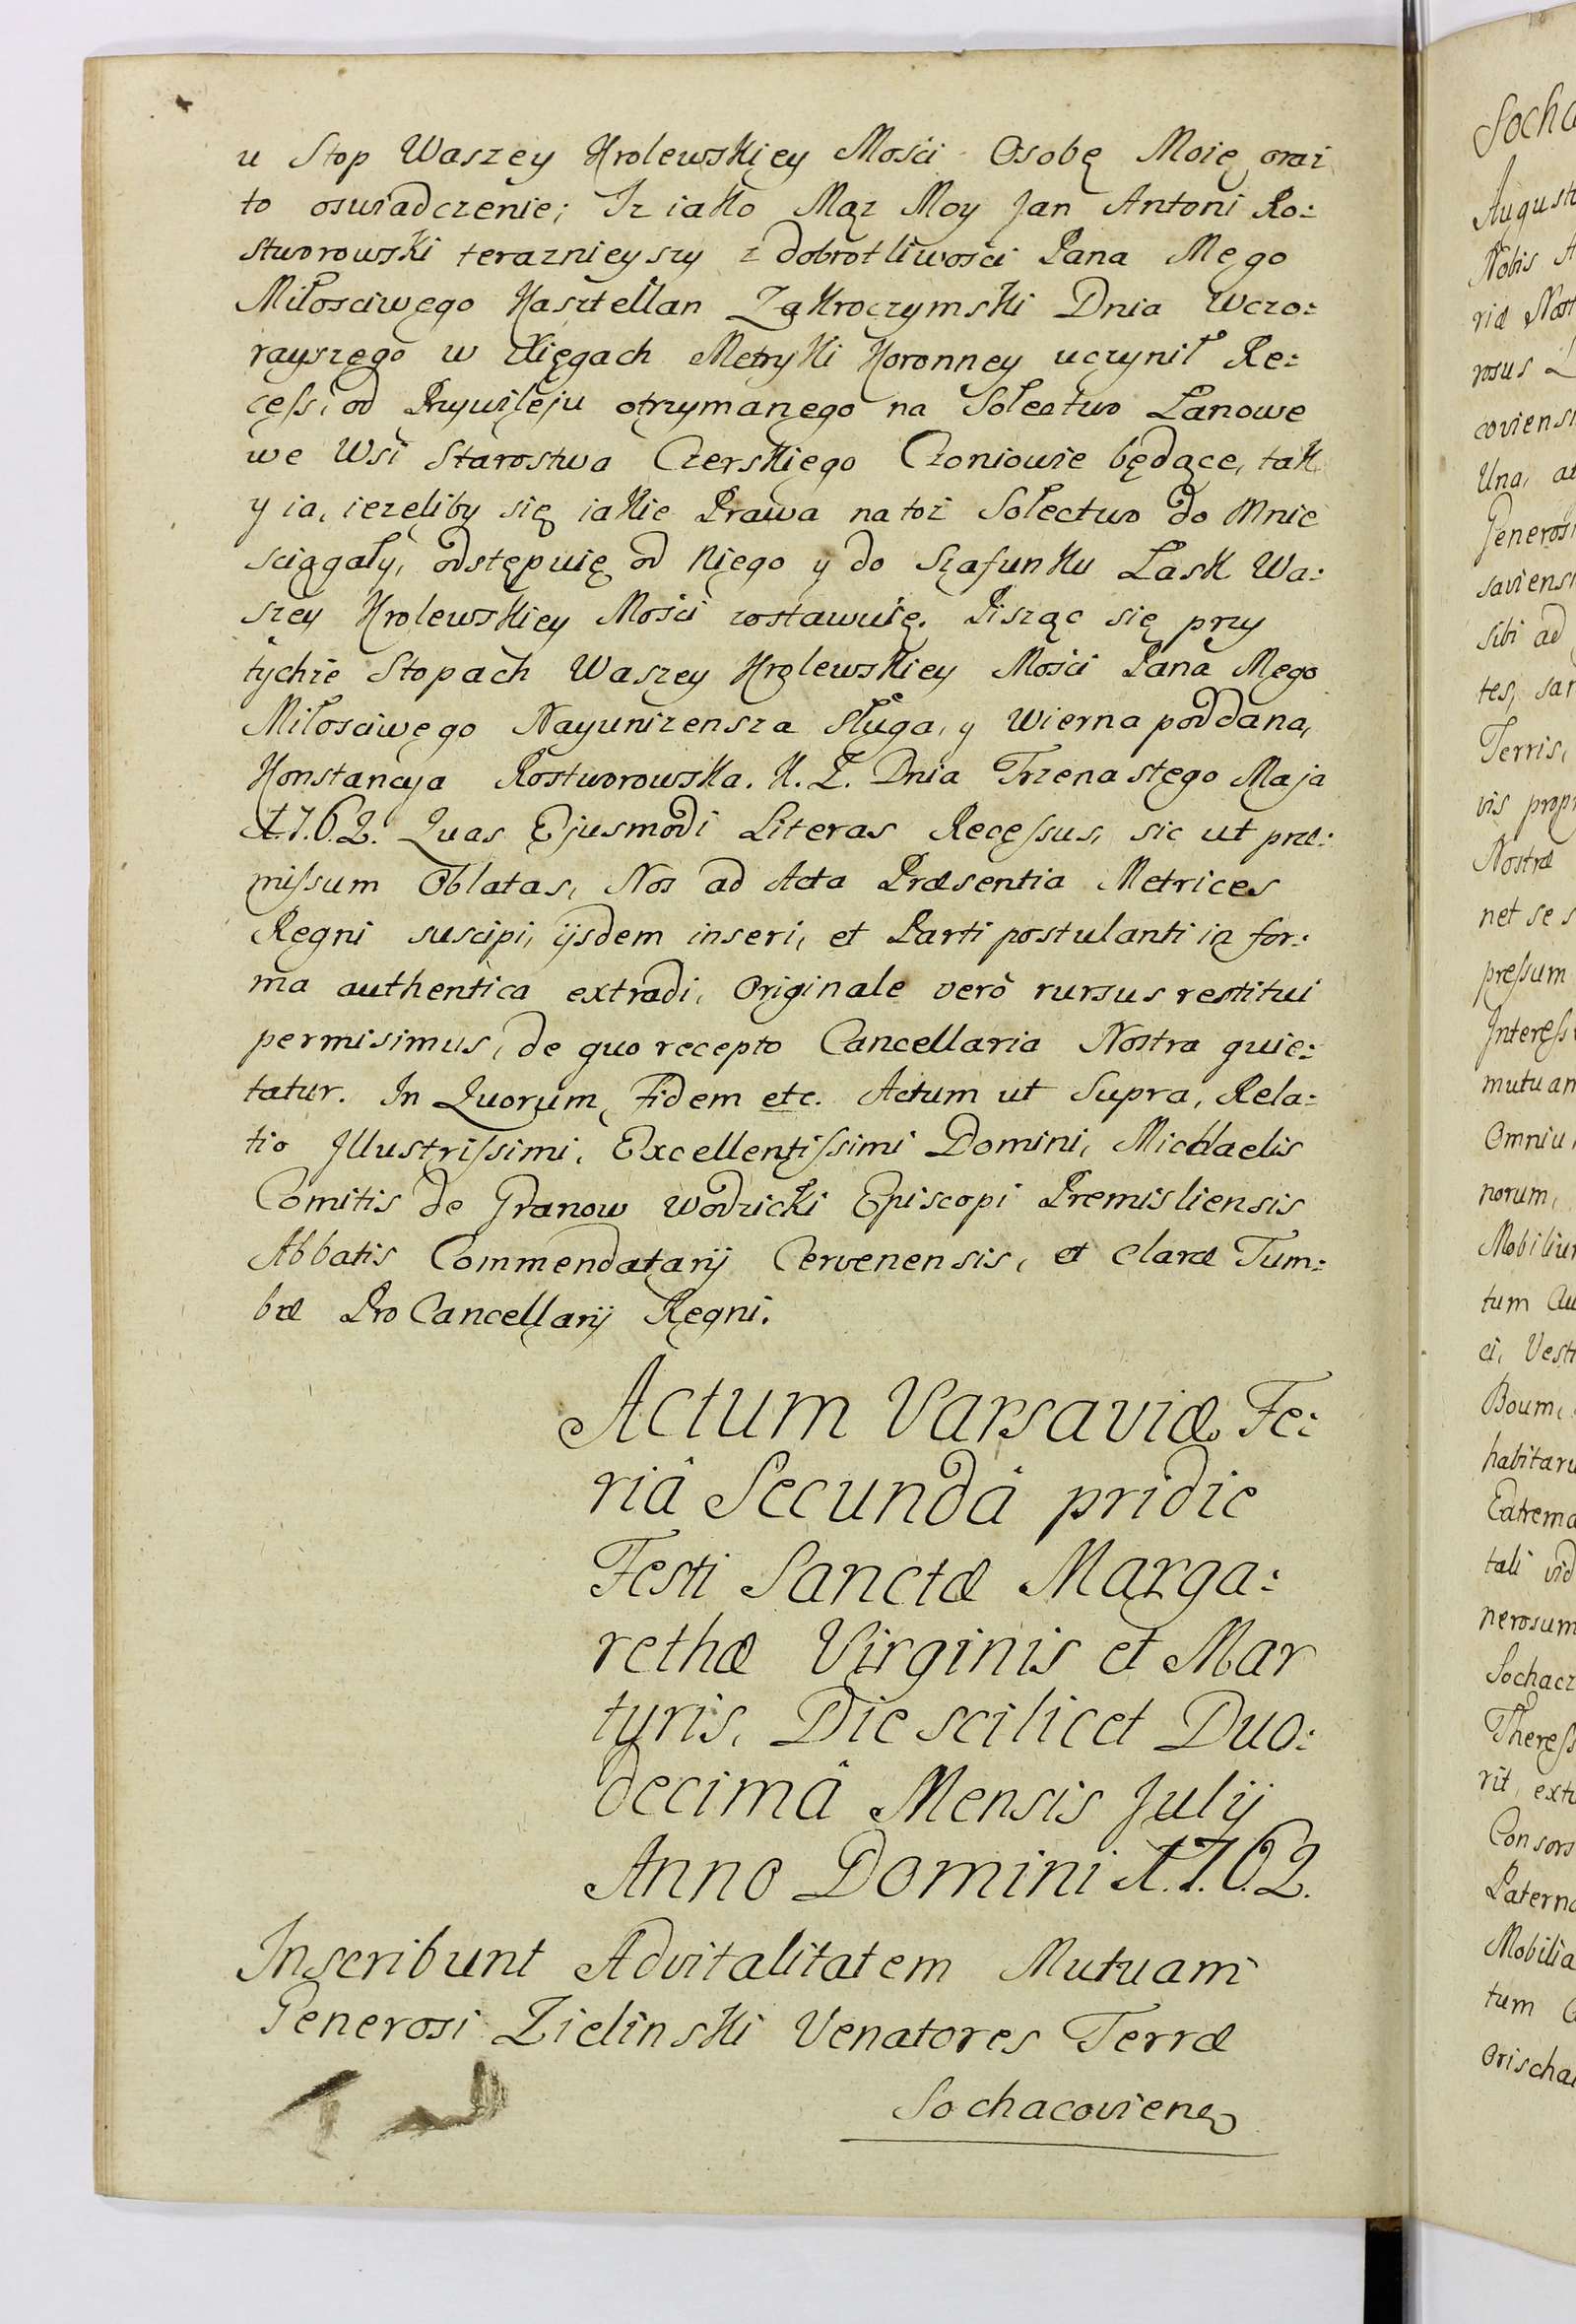 u Stop Waszey Krolewskiey Mości Osobę Moię oraz
to oswiadczenie; Iz iako Mąz Moy Jan Antoni Ro:
stworowski teraznieyszy z dobrotliwości Pana Mego
Miłosciwego Kasztellan Zakroczymski Dnia Wczo:
rayszego w Xięgach Metryki Koronney uczynił Re:
cess, od Przywileju otrzymanego na Sołectwo Łanowe
we Wsi Starostwa Czerskiego Czoniowie będące, tak
y ia, iezeliby się iakie Prawa na toż Sołectwo do Mnie
sciągały, odstępuię od Niego y do Szafunku Łask Wa:
szey Krolewskiey Mości zostawuię. Pisząc się przy
tychże Stopach Waszey Krolewskiey Mości Pana Mego
Miłosciwego Nayunizensza Sługa, y Wierna poddana,
Konstancya Rostworowska. K. Z. Dnia Trzenastego Maja
1.7.6.2. Quas Ejusmodi Literas Recessus, sic ut præ:
missum Oblatas, Nos ad Acta Præsentia Metrices
Regni suscipi, ijsdem inseri, et Parti postulanti in for:
ma authentica extradi, Originale verò rursus restitui
permisimus, de quo recepto Cancellaria Nostra quie:
tatur. In Quorum Fidem etc. Actum ut Supra, Rela:
tio Illustrissimi, Excellentissimi Domini, Michaelis
Comitis de Granow Wodzicki Episcopi Premisliensis
Abbatis Commendatarij Cervenensis, et Claræ Tum:
bæ Pro Cancellarij Regni.
Actum Varsaviæ Fe:
riâ Secundâ pridie
Festi Sanctæ Marga:
rethæ Virginis et Mar
tyris, Die scilicet Duo:
decimâ Mensis Julij
Anno Domini 1.7.6.2.
Inscribunt Advitalitatem Mutuam
Generosi Zielinski Venatores Terræ
Sochacovienẽs
Socha
Augustu
Nobis
riæ Nost
rosus
coviensi
Una, at
Generosi
saviensi
sibi ad
tes, sa
Terris,
vis propr
Nostræ
net se s
pressum
Interess
mutuam
Omniu
norum,
Mobiliu
tum Au
ci, Vest
Boum,
habitaru
Extrema
tali vid
nerosum
Sochacz
Theress
rit, extu
Consors
Paterna
Mobilia
tum
Orischa